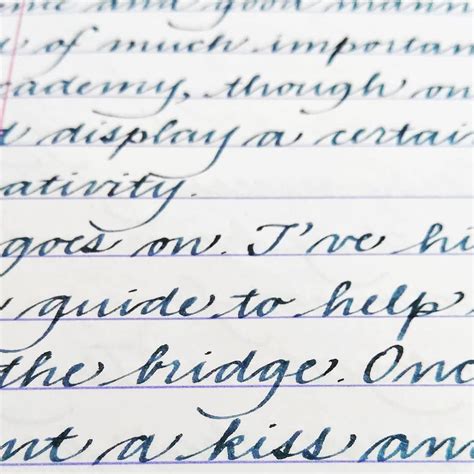 me and good mann
d of much importan
cademy, though on
d display a certai
ativity.
goes on. I've hi
guide to help
the bridge. Onc
nt a kiss an